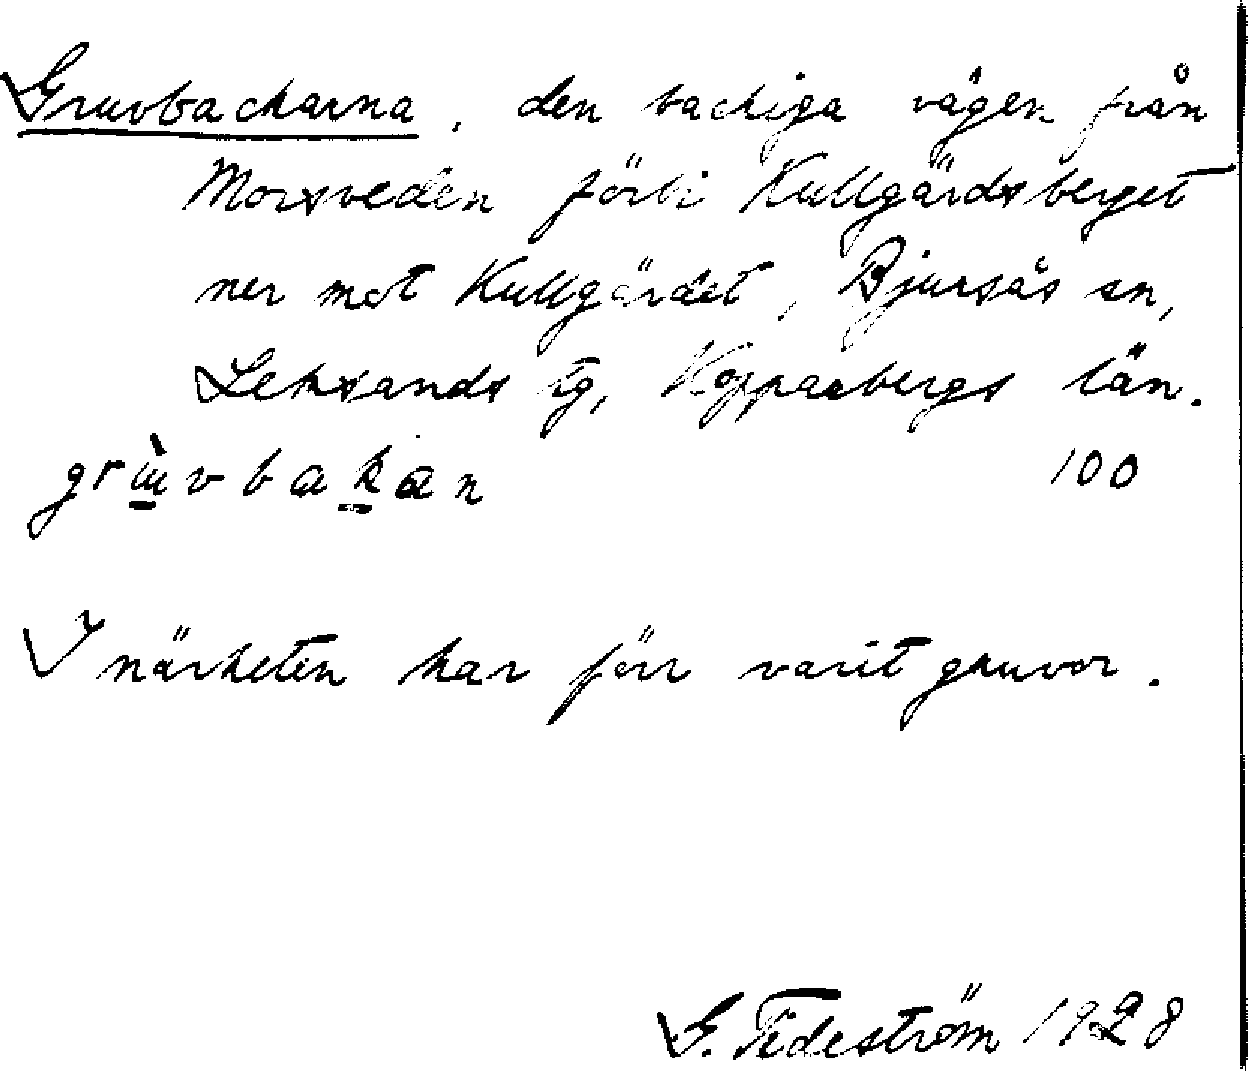 Gruvbackarna, den backiga vägen från
Morsveden förbi Kullgärdsberget
ner mot Kullgärdet, Bjursås sn,
Leksands tg, Kopparbergs län.
grùvbakan 100
I närheten har förr varit gruvor.
G. Tideström 1928